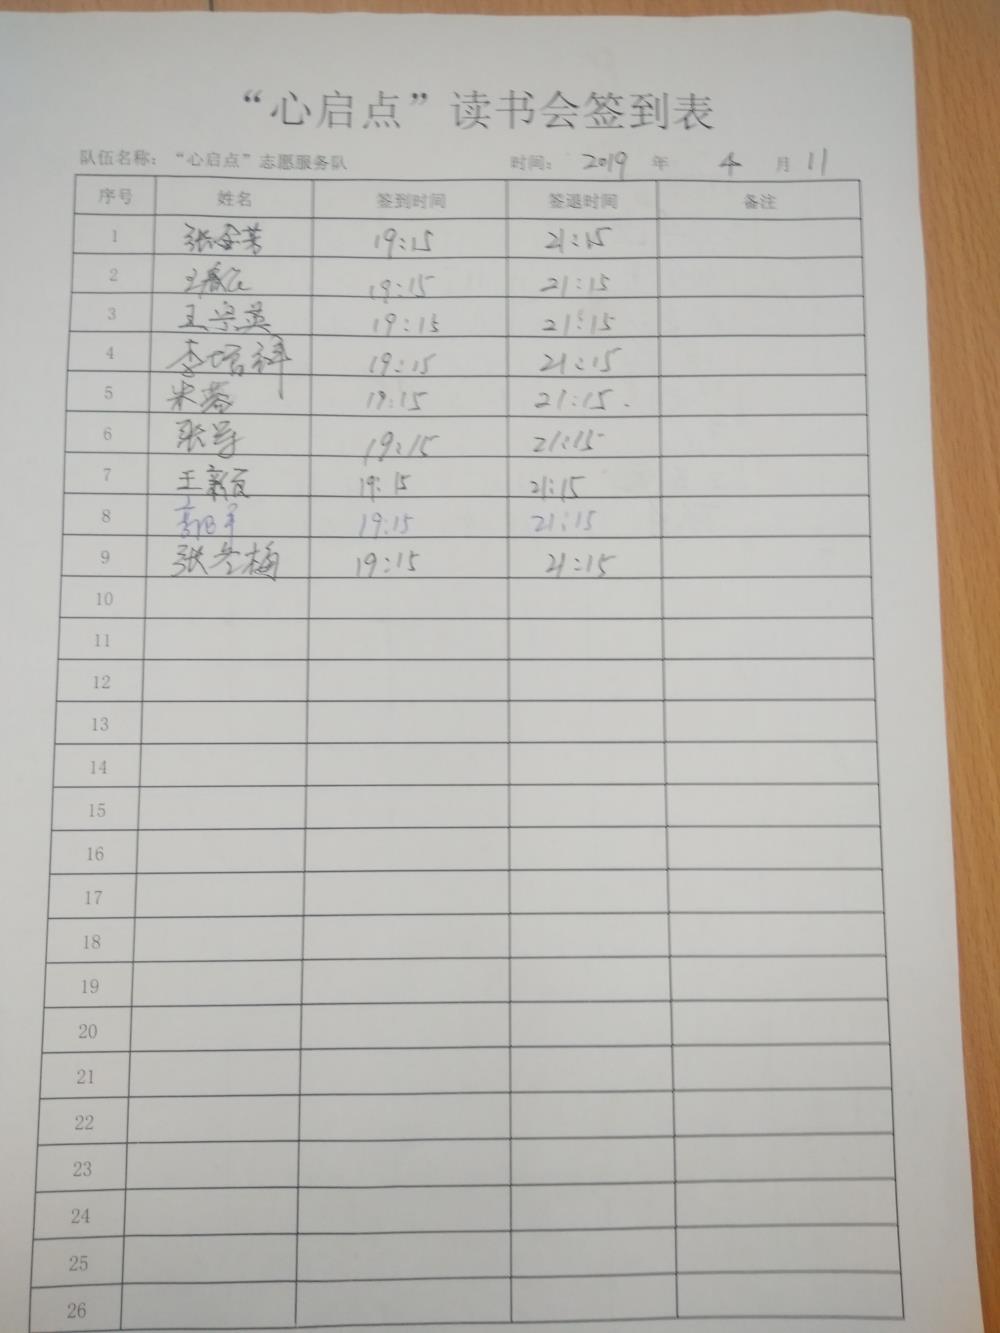 “心启点”读书会签到表
队伍名称：“心启点”志愿服务队 时间： 2019 年 4 月 11
序号 姓名 签到时间 签退时间 备注
1 张金芳 19:15 21:15
2 19:15 21:15
3 王宗英 19:15 21:15
4 李培祥 19:15 21:15
5 朱蓉 19:15 21:15.
6 19:15 21:15
7 王新 19:15 21:15
8 19:15 21:15
9 张冬梅 19:15 21:15
10
11
12
13
14
15
16
17
18
19
20
21
22
23
24
25
26